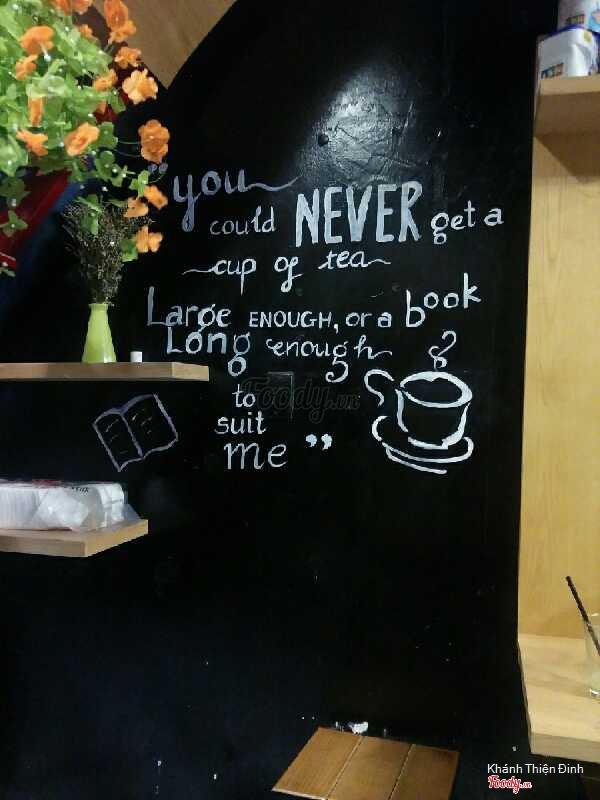 "you
could NEVER get a
cup of tea
Large ENOUGH, or a book
Long enough
to
suit
me"
Foody.vn
Khánh Thiện Đinh
Foody.vn